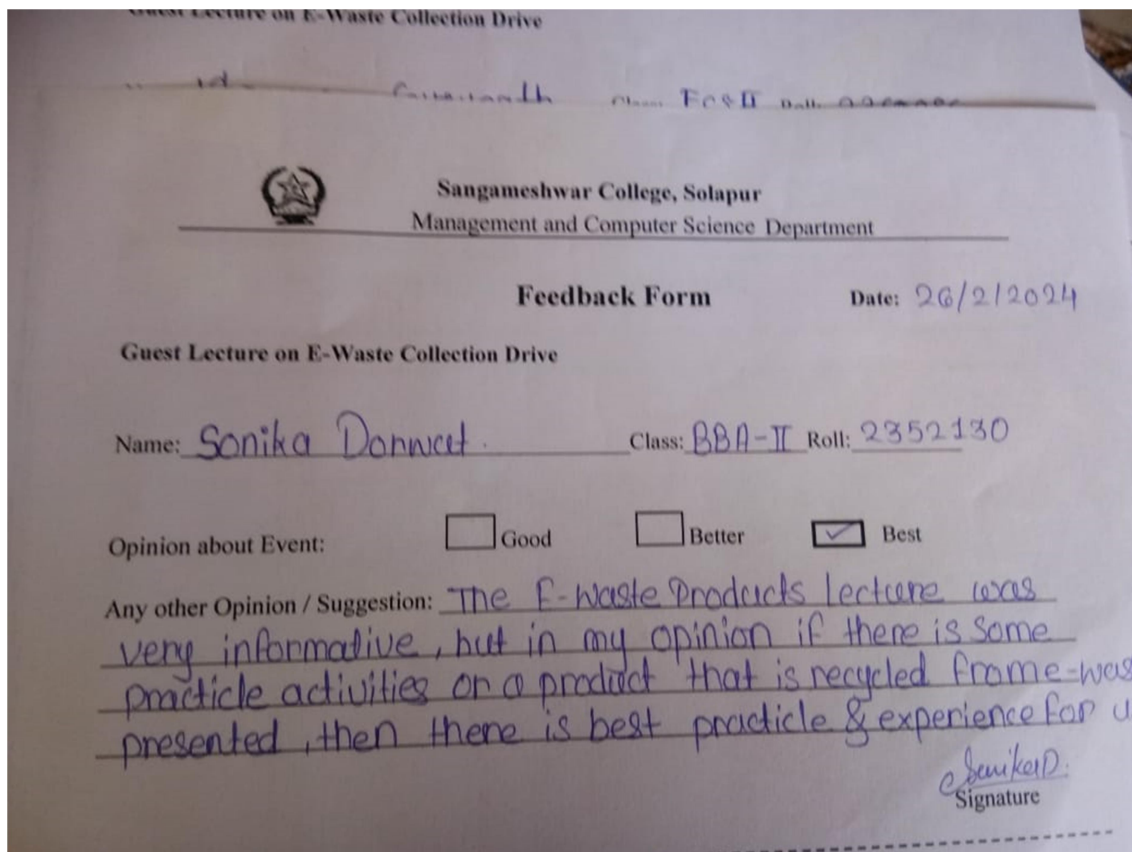 Guest Lecture on E-Waste Collection Drive
Class: FCS II Roll:
Sangameshwar College, Solapur
Management and Computer Science Department
Feedback Form Date: 26/2/2024
Guest Lecture on E-Waste Collection Drive
Name: Sonika Donwat. Class: BBA-II Roll: 2352130
Opinion about Event: Good Better Best
Any other Opinion / Suggestion: The E-Waste Products lecture was
very informative, but in my opinion if there is some
practicle activities or a product that is recycled from e-was
presented, then there is best practicle & experience for u
SonikaD.
Signature